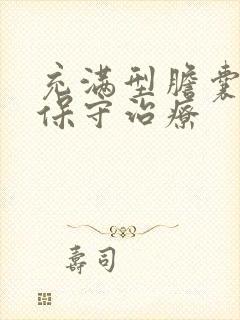 充满型膽囊
保守治療
壽司